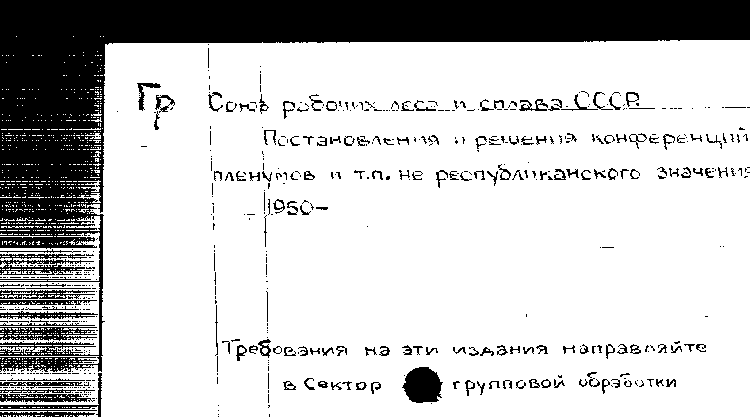 Гр Союз рабочих леса и сплава СССР
Постановления и решения конференций
пленумов и т.п. не республиканского значения
1950–
Требования на эти издания направляйте
в Сектор групповой обработки